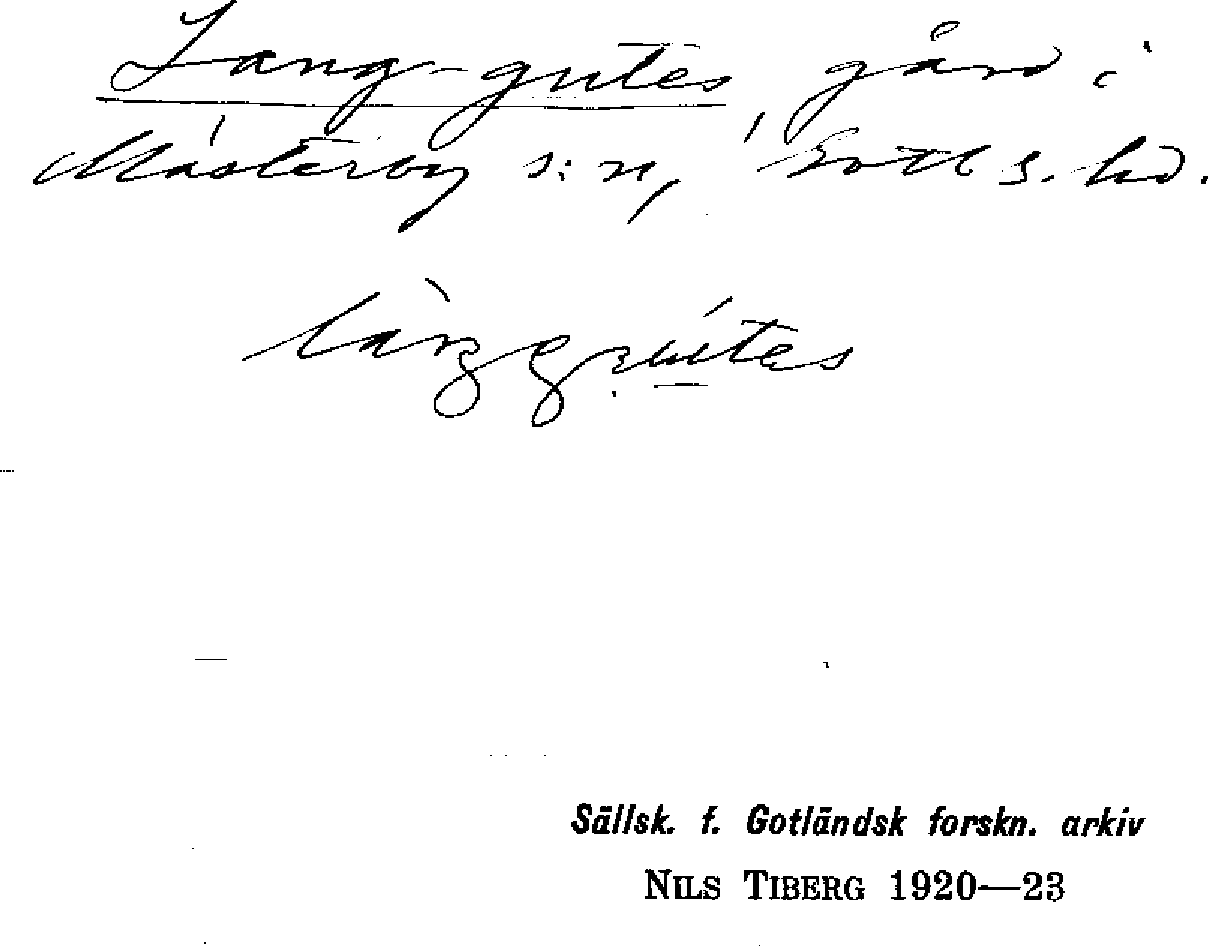 Lang-gutes, gård i
Mästerby s:n, Gotl s. hd.
Sällsk. f. Gotländsk forskn. arkiv
NILS TIBERG 1920—23